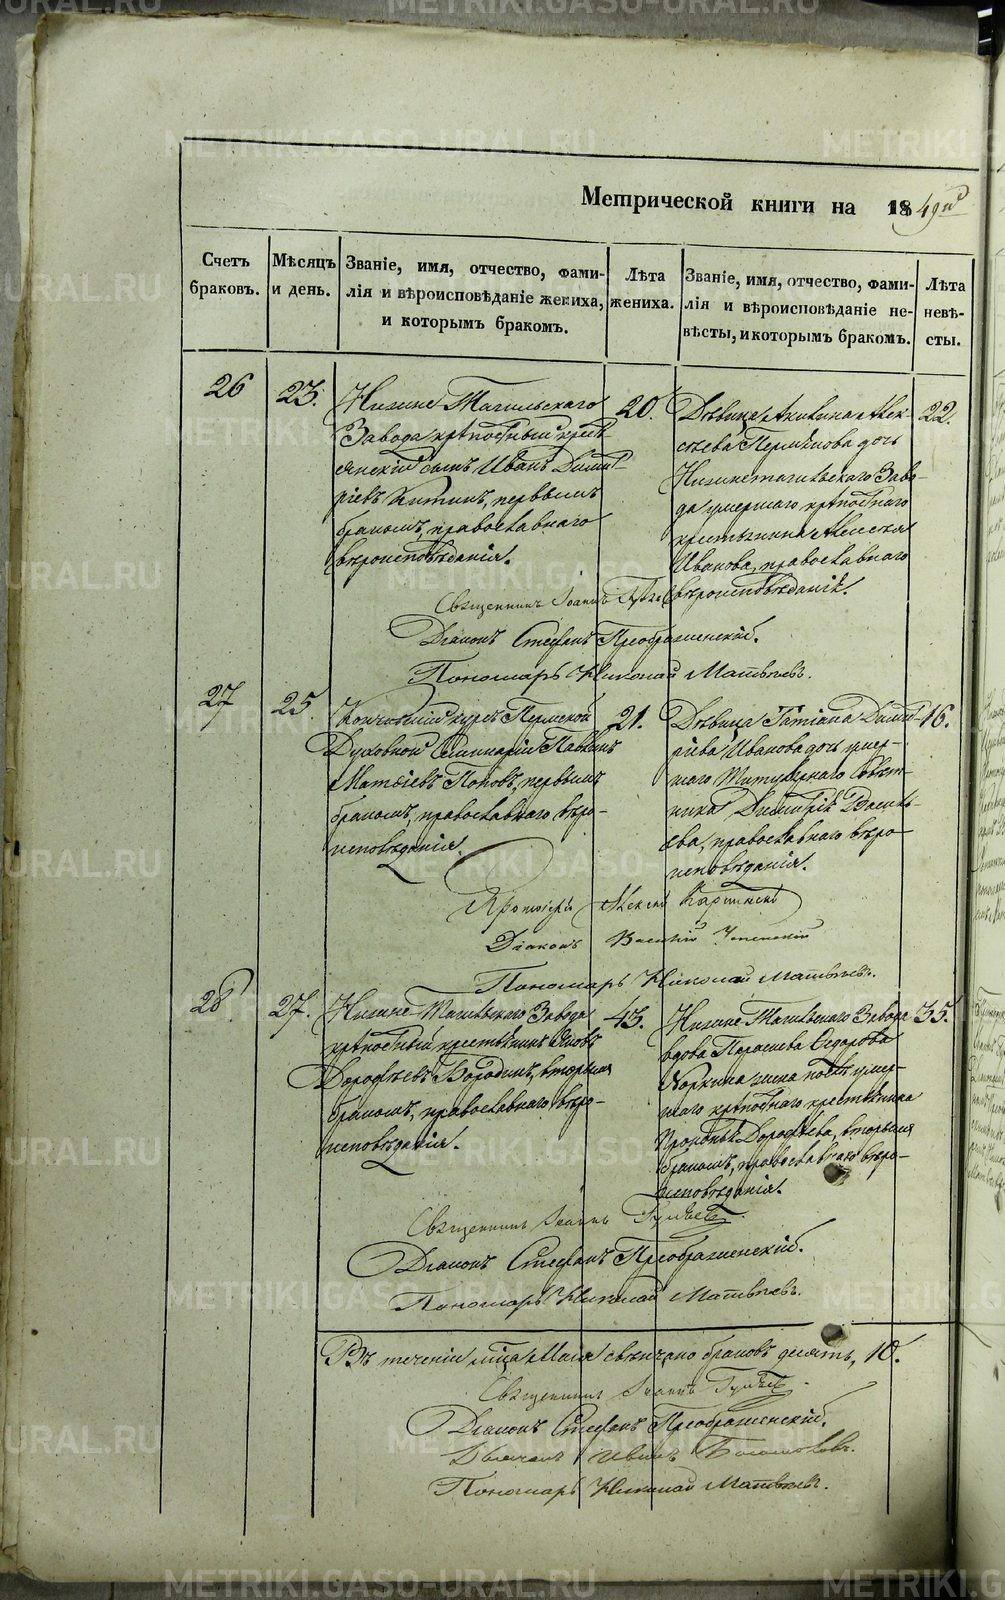 METRIKI.GASO-URAL.RU
Метрической книги на 1849й
Счетъ браковъ.
Мѣсяцъ и день.
Званіе, имя, отчество, фами-
лія и вѣроисповѣданіе жениха,
и которымъ бракомъ.
Лѣта
жениха.
Званіе, имя, отчество, фами-
лія и вѣроисповѣданіе не-
вѣсты, и которымъ бракомъ.
Лѣта
невѣ-
сты.
26
23.
Нижне Тагильскаго
Завода крѣпостный крест
янский сынъ Иванъ Димит
ріевъ Китинъ, первымъ
бракомъ, православнаго
вѣроисповѣданія.
20.
Дѣвица Акилина Алек-
сѣева дочь
Нижнетагильскаго Заво-
да умершаго крѣпостнаго
крестьянина Алексѣя
Иванова, православнаго
вѣроисповѣданія.
22.
Священникъ Іоаннъ
Діаконъ Стефанъ Преображенскій.
Пономарь Николай Матвѣевъ.
27
25
Кончившій курсъ Пермской
Духовной Семинаріи Павелъ
Матѳіевъ Поповъ, первымъ
бракомъ, православнаго вѣро-
исповѣданія.
21.
Дѣвица Татіана Димит-
ріева Иванова дочь умер-
шаго Титулярнаго Совѣт-
ника Димитрія Василь-
ева, православнаго вѣро-
исповѣданія.
16.
Протоіерей Алексій Карпинскій
Діаконъ Василій Успенскій
Пономарь Николай Матвѣевъ.
28
27.
Нижне Тагильскаго Завода
крѣпостный крестьянинъ Яковъ
Дорофѣевъ Бородинъ, вторымъ
бракомъ, православнаго вѣро-
исповѣданія.
43.
Нижне Тагильскаго Завода
вдова Парасковья Ѳедорова
жена послѣ умер-
шаго крѣпостнаго крестьянина
Дорофѣева, вторымъ
бракомъ, православнаго вѣро-
исповѣданія.
35.
Священникъ Іоаннъ
Діаконъ Стефанъ Преображенскій.
Пономарь Николай Матвѣевъ.
Въ теченіи мѣсяца Мая свѣнчано браковъ десять, 10.
Священникъ Іоаннъ
Діаконъ Стефанъ Преображенскій.
Дьячокъ Иванъ Богомоловъ.
Пономарь Николай Матвѣевъ.